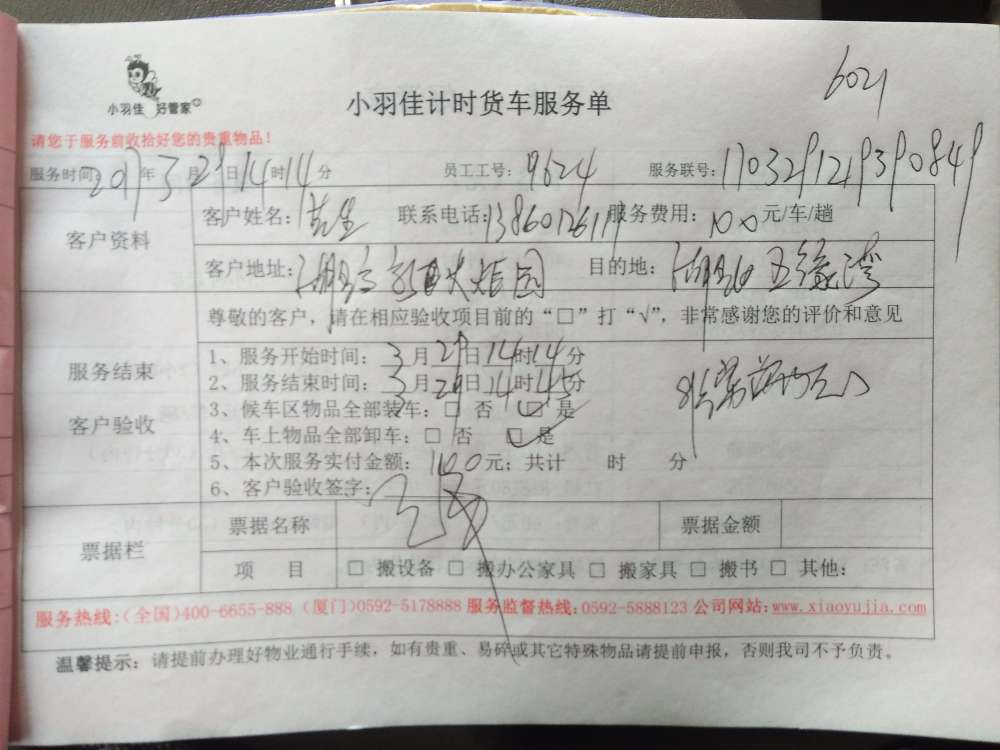 6021
小羽佳 好管家
小羽佳计时货车服务单
请您于服务前收拾好您的贵重物品!
服务时间:2017年3月29日14时14分 员工工号: 9624 服务联号: 170329121390849
客户资料
客户姓名: 先生 联系电话: 服务费用: 100元/车/趟
客户地址: 湖里 火炬园 目的地: 湖里 五缘湾
尊敬的客户，请在相应验收项目前的“□”打“√”，非常感谢您的评价和意见
服务结束
客户验收
1、服务开始时间: 3月29日14时14分
2、服务结束时间: 3月29日14时45分
3、候车区物品全部装车: □ 否 ☑ 是
4、车上物品全部卸车: □ 否 ☑ 是
5、本次服务实付金额: 100元; 共计 时 分
6、客户验收签字:
票据栏
票据名称 票据金额
项 目 □ 搬设备 □ 搬办公家具 □ 搬家具 □ 搬书 □ 其他:
服务热线:(全国)400-6655-888 (厦门)0592-5178888 服务监督热线:0592-5888123 公司网站:www.xiaoyujia.com
温馨提示: 请提前办理好物业通行手续，如有贵重、易碎或其它特殊物品请提前申报，否则我司不予负责。